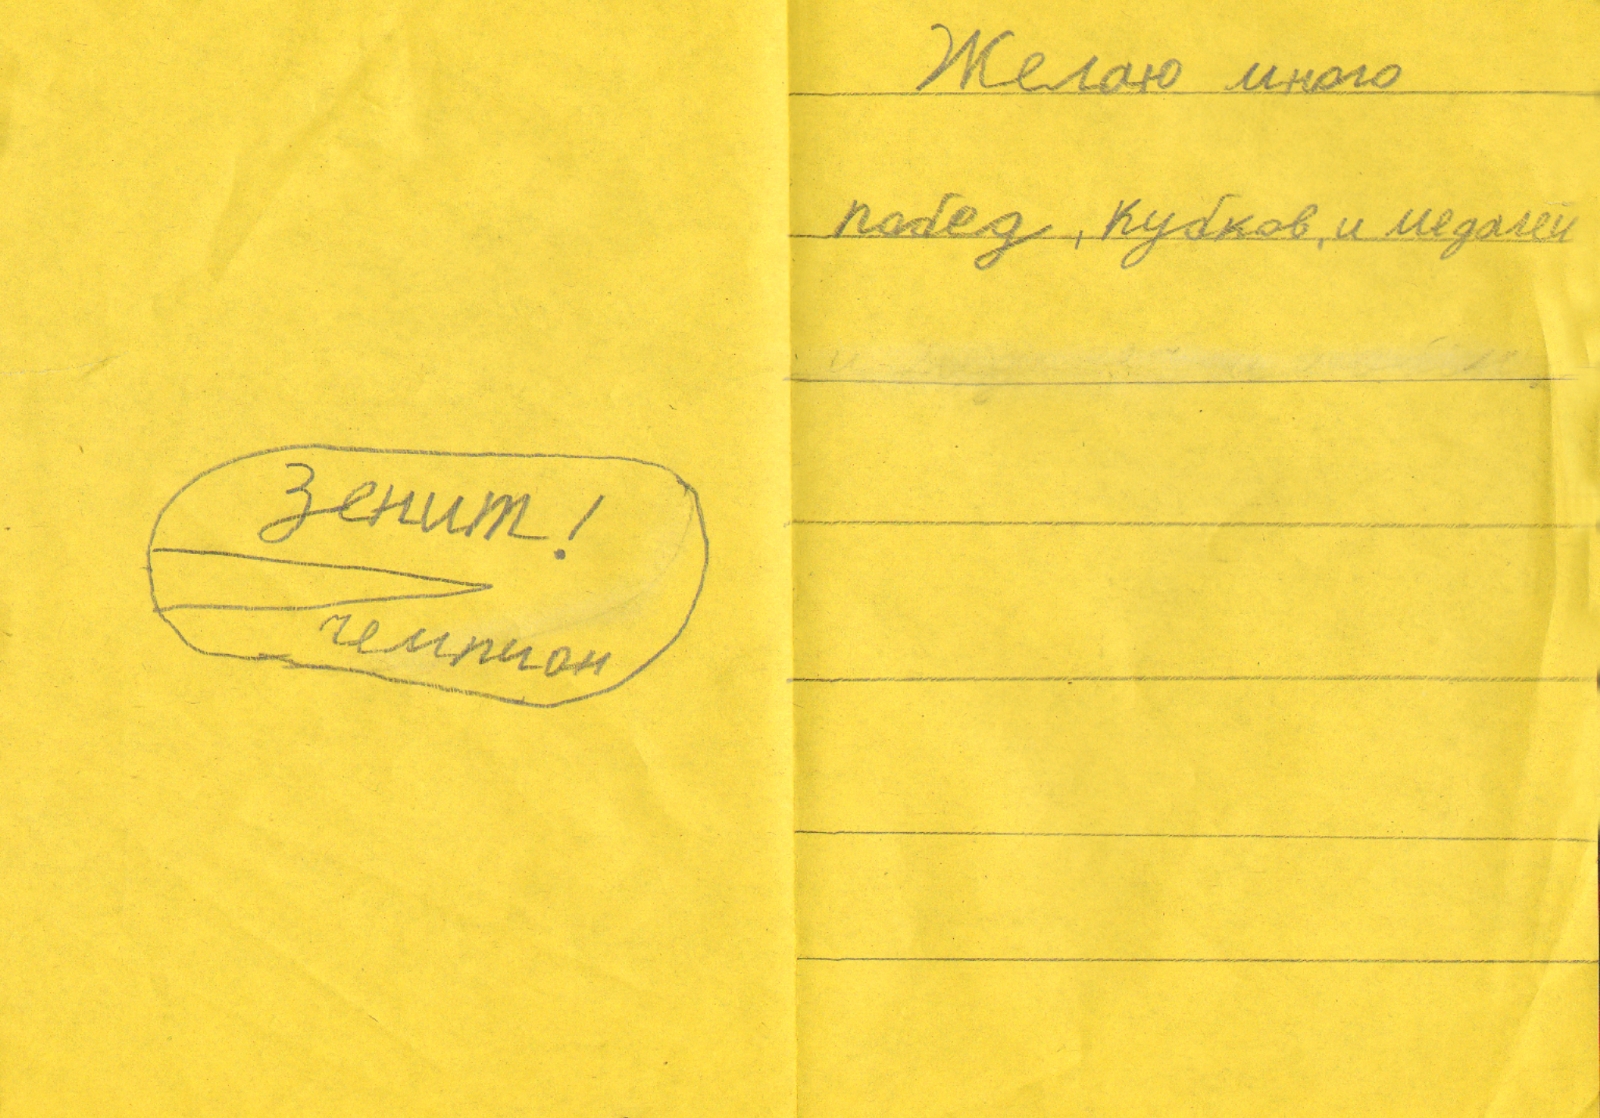 Зенит!
чемпион
Желаю много
побед, Кубков, и медалей